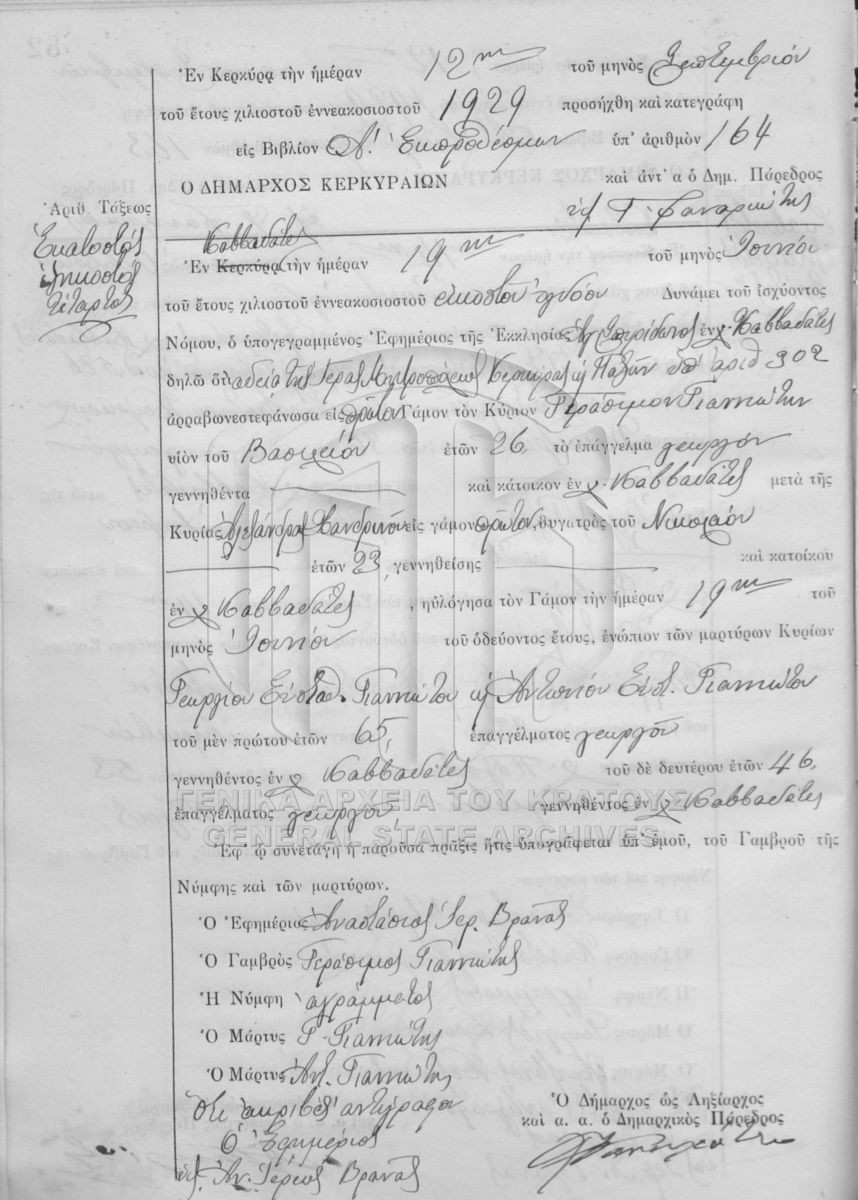 Ἐν Κερκύρᾳ τὴν ἡμέραν 12ην τοῦ μηνὸς Σεπτεμβρίου
τοῦ ἔτους χιλιοστοῦ ἐννεακοσιοστοῦ 1929 προσήχθη καὶ κατεγράφη
εἰς Βιβλίον Α΄. Ἐκπροθέσμων ὑπ' ἀριθμὸν 164
Ο ΔΗΜΑΡΧΟΣ ΚΕΡΚΥΡΑΙΩΝ καὶ ἀντ' α ὁ Δημ. Πάρεδρος
Γ. Φαναριώτης
Ἀριθ. Τάξεως
Ἑκατοστὸς
εἰκοστὸς
τέταρτος
Καββαδάτες
Ἐν Κερκύρᾳ τὴν ἡμέραν 19ην τοῦ μηνὸς Ἰουνίου
τοῦ ἔτους χιλιοστοῦ ἐννεακοσιοστοῦ εἰκοστοῦ Δυνάμει τοῦ ἰσχύοντος
Νόμου, ὁ ὑπογεγραμμένος Ἐφημέριος τῆς Ἐκκλησίας Ἁγ. Σπυρίδωνος ἐν χ. Καββαδάτες
δηλῶ ὅτι ἀδείᾳ τῆς Ἱερᾶς Μητροπόλεως Κερκύρας ϗ Παξῶν ὑπ' ἀριθ 302
ἀρραβωνεστεφάνωσα εἰς πρῶτον Γάμον τὸν Κύριον Γεράσιμον Γιαννιώτην
υἱὸν τοῦ Βασιλείου ἐτῶν 26 τὸ ἐπάγγελμα γεωργὸν
γεννηθέντα καὶ κάτοικον ἐν χ. Καββαδάτες μετὰ τῆς
Κυρίας Ἀλεξάνδρας Χανδρινοῦ εἰς γάμον πρῶτον, θυγατρὸς τοῦ Νικολάου
ἐτῶν 23, γεννηθείσης καὶ κατοίκου
ἐν χ. Καββαδάτες, ηὐλόγησα τὸν Γάμον τὴν ἡμέραν 19ην τοῦ
μηνὸς Ἰουνίου τοῦ ὁδεύοντος ἔτους, ἐνώπιον τῶν μαρτύρων Κυρίων
Γεωργίου Εὐσταθ. Γιαννιώτου ϗ Ἀντωνίου Εὐστ. Γιαννιώτου
τοῦ μὲν πρώτου ἐτῶν 65, ἐπαγγέλματος γεωργοῦ
γεννηθέντος ἐν χ. Καββαδάτες τοῦ δὲ δευτέρου ἐτῶν 46,
ἐπαγγέλματος γεωργοῦ, γεννηθέντος ἐν χ. Καββαδάτες
ΓΕΝΙΚΑ ΑΡΧΕΙΑ ΤΟΥ ΚΡΑΤΟΥΣ
GENERAL STATE ARCHIVES
Ἐφ' ᾧ συνετάγη ἡ παροῦσα πρᾶξις ἥτις ὑπογράφεται ὑπ' ἐμοῦ, τοῦ Γαμβροῦ τῆς
Νύμφης καὶ τῶν μαρτύρων.
Ὁ Ἐφημέριος Ἀναστάσιος Ἱερ. Βρανᾶς
Ὁ Γαμβρὸς Γεράσιμος Γιαννιώτης
Ἡ Νύμφη ἀγράμματος
Ὁ Μάρτυς Γ. Γιαννιώτης
Ὁ Μάρτυς Ἀντ. Γιαννιώτης
Ὅτι ἀκριβὲς ἀντίγραφον
Ὁ Ἐφημέριος
Ἀν. Ἱερεὺς Βρανᾶς
Ὁ Δήμαρχος ὡς Ληξίαρχος
καὶ α. α. ὁ Δημαρχικὸς Πάρεδρος